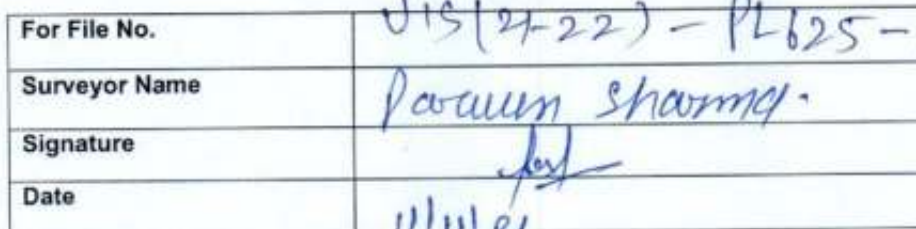 For File No. VIS(21-22) - PL625 -
Surveyor Name Paraveen Sharma.
Signature
Date